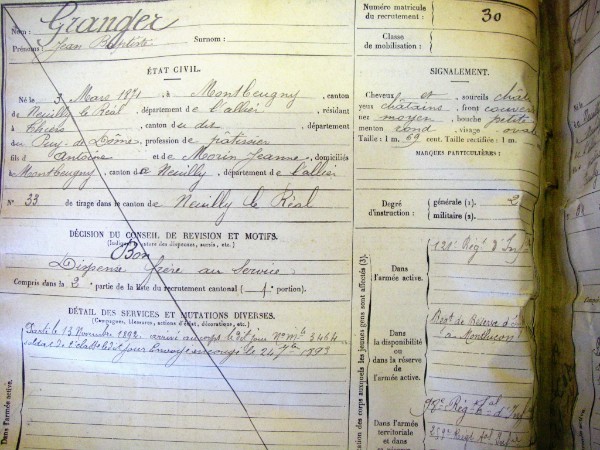 Nom : Grander
Prénoms : Jean Baptiste Surnom :
ÉTAT CIVIL.
Né le 3 Mars 1871 à Montbeugny, canton
de Neuilly le Réal, département de l'allier, résidant
à Thiers, canton du dis, département
du Puy-de-Dôme, profession de pâtissier
fils d'Antoine et de Morin Jeanne, domiciliés
à Montbeugny, canton de Neuilly, département de l'allier
N° 33 de tirage dans le canton de Neuilly le Réal
DÉCISION DU CONSEIL DE RÉVISION ET MOTIFS.
Bon
Dispensé frère au service
Compris dans la 2e partie de la liste du recrutement cantonal ( portion).
DÉTAIL DES SERVICES ET MUTATIONS DIVERSES.
(Campagnes, blessures, actions d'éclat, décorations, etc.)
Parti le 13 Novembre 1892 arrivé au corps le dit jour N° Mle 3464
le 24 7bre 1893
Dans l'armée active.
Numéro matricule
du recrutement : 30
Classe
de mobilisation :
SIGNALEMENT.
Cheveux et sourcils chât
yeux châtains, front couvert
nez moyen, bouche petite
menton rond, visage oval
Taille : 1 m. 69 cent. Taille rectifiée : 1 m.
MARQUES PARTICULIÈRES :
Degré
d'instruction :
générale (1). 2
militaire (2).
corps auxquels les jeunes gens sont affectés (3).
Dans
l'armée active.
121e Régt d'Inf
Dans
la disponibilité
ou
dans la réserve
de l'armée active.
Régt de Réserve d'
à Montluçon
Dans l'armée
territoriale
et dans sa
98e Régt tal d'Inf